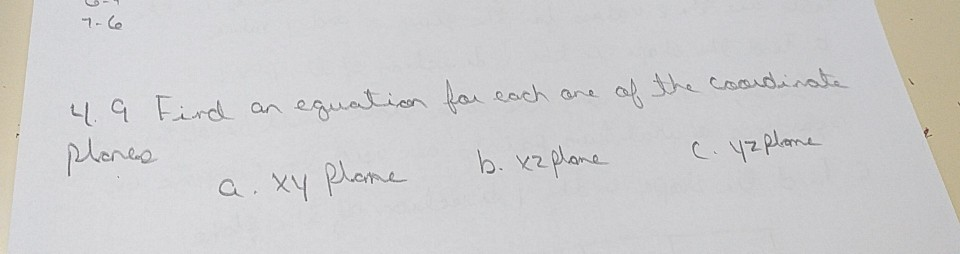 7-6
4.9 Find an equation for each one of the coordinate
planes
a. xy plane b. xz plane c. yz plane